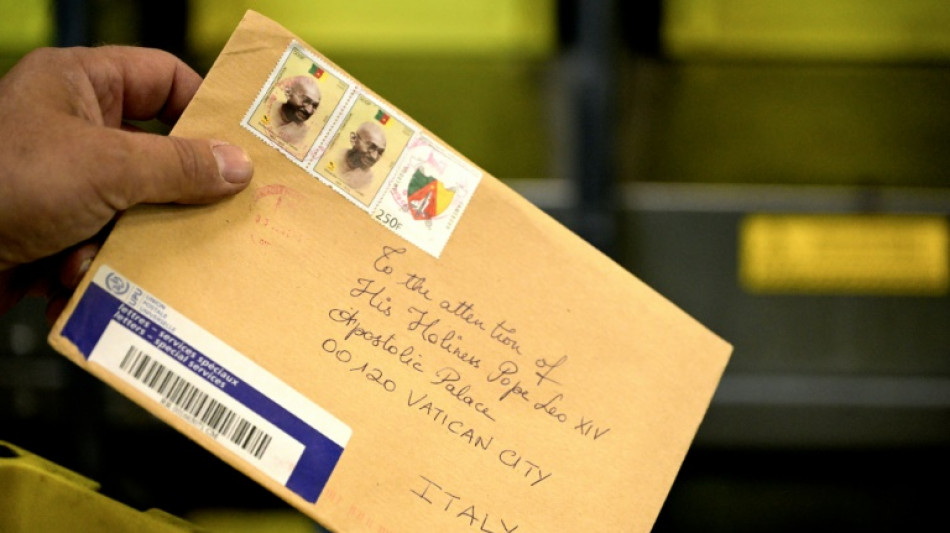 250F
To the attention of
His Holiness Pope Leo XIV
Apostolic Palace
00 120 VATICAN CITY
ITALY
UNION
POSTALE
UNIVERSELLE
lettres – services spéciaux
letters – special services